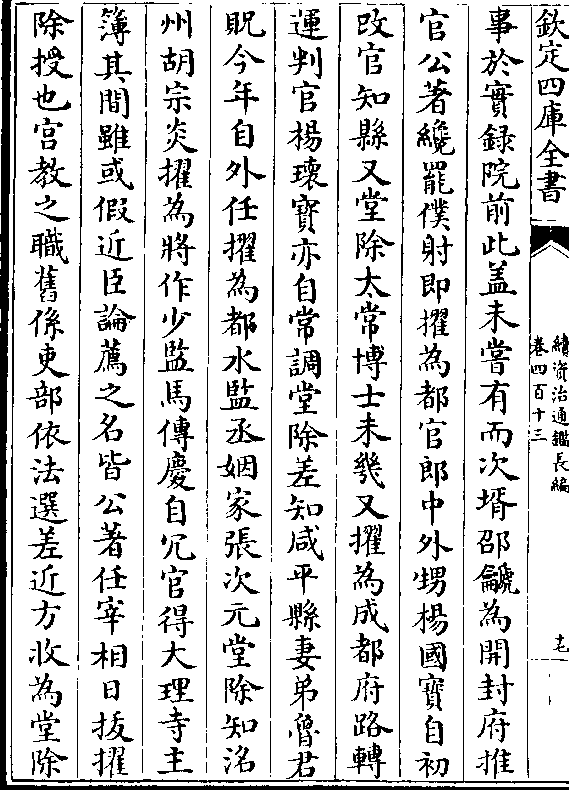 欽定四庫全書
續資治通鑑長編
卷四百十三
事於實録院前此蓋未嘗有而次壻邵𪛉為開封府推
官公著纔罷僕射即擢為都官郎中外甥楊國寶自初
改官知縣又堂除太常博士未幾又擢為成都府路轉
運判官楊瓌寶亦自常調堂除差知咸平縣妻弟魯君
貺今年自外任擢為都水監丞姻家張次元堂除知洺
州胡宗炎擢為將作少監馬傳慶自冗官得大理寺主
簿其間雖或假近臣論薦之名皆公著任宰相日拔擢
除授也宫教之職舊係吏部依法選差近方收為堂除